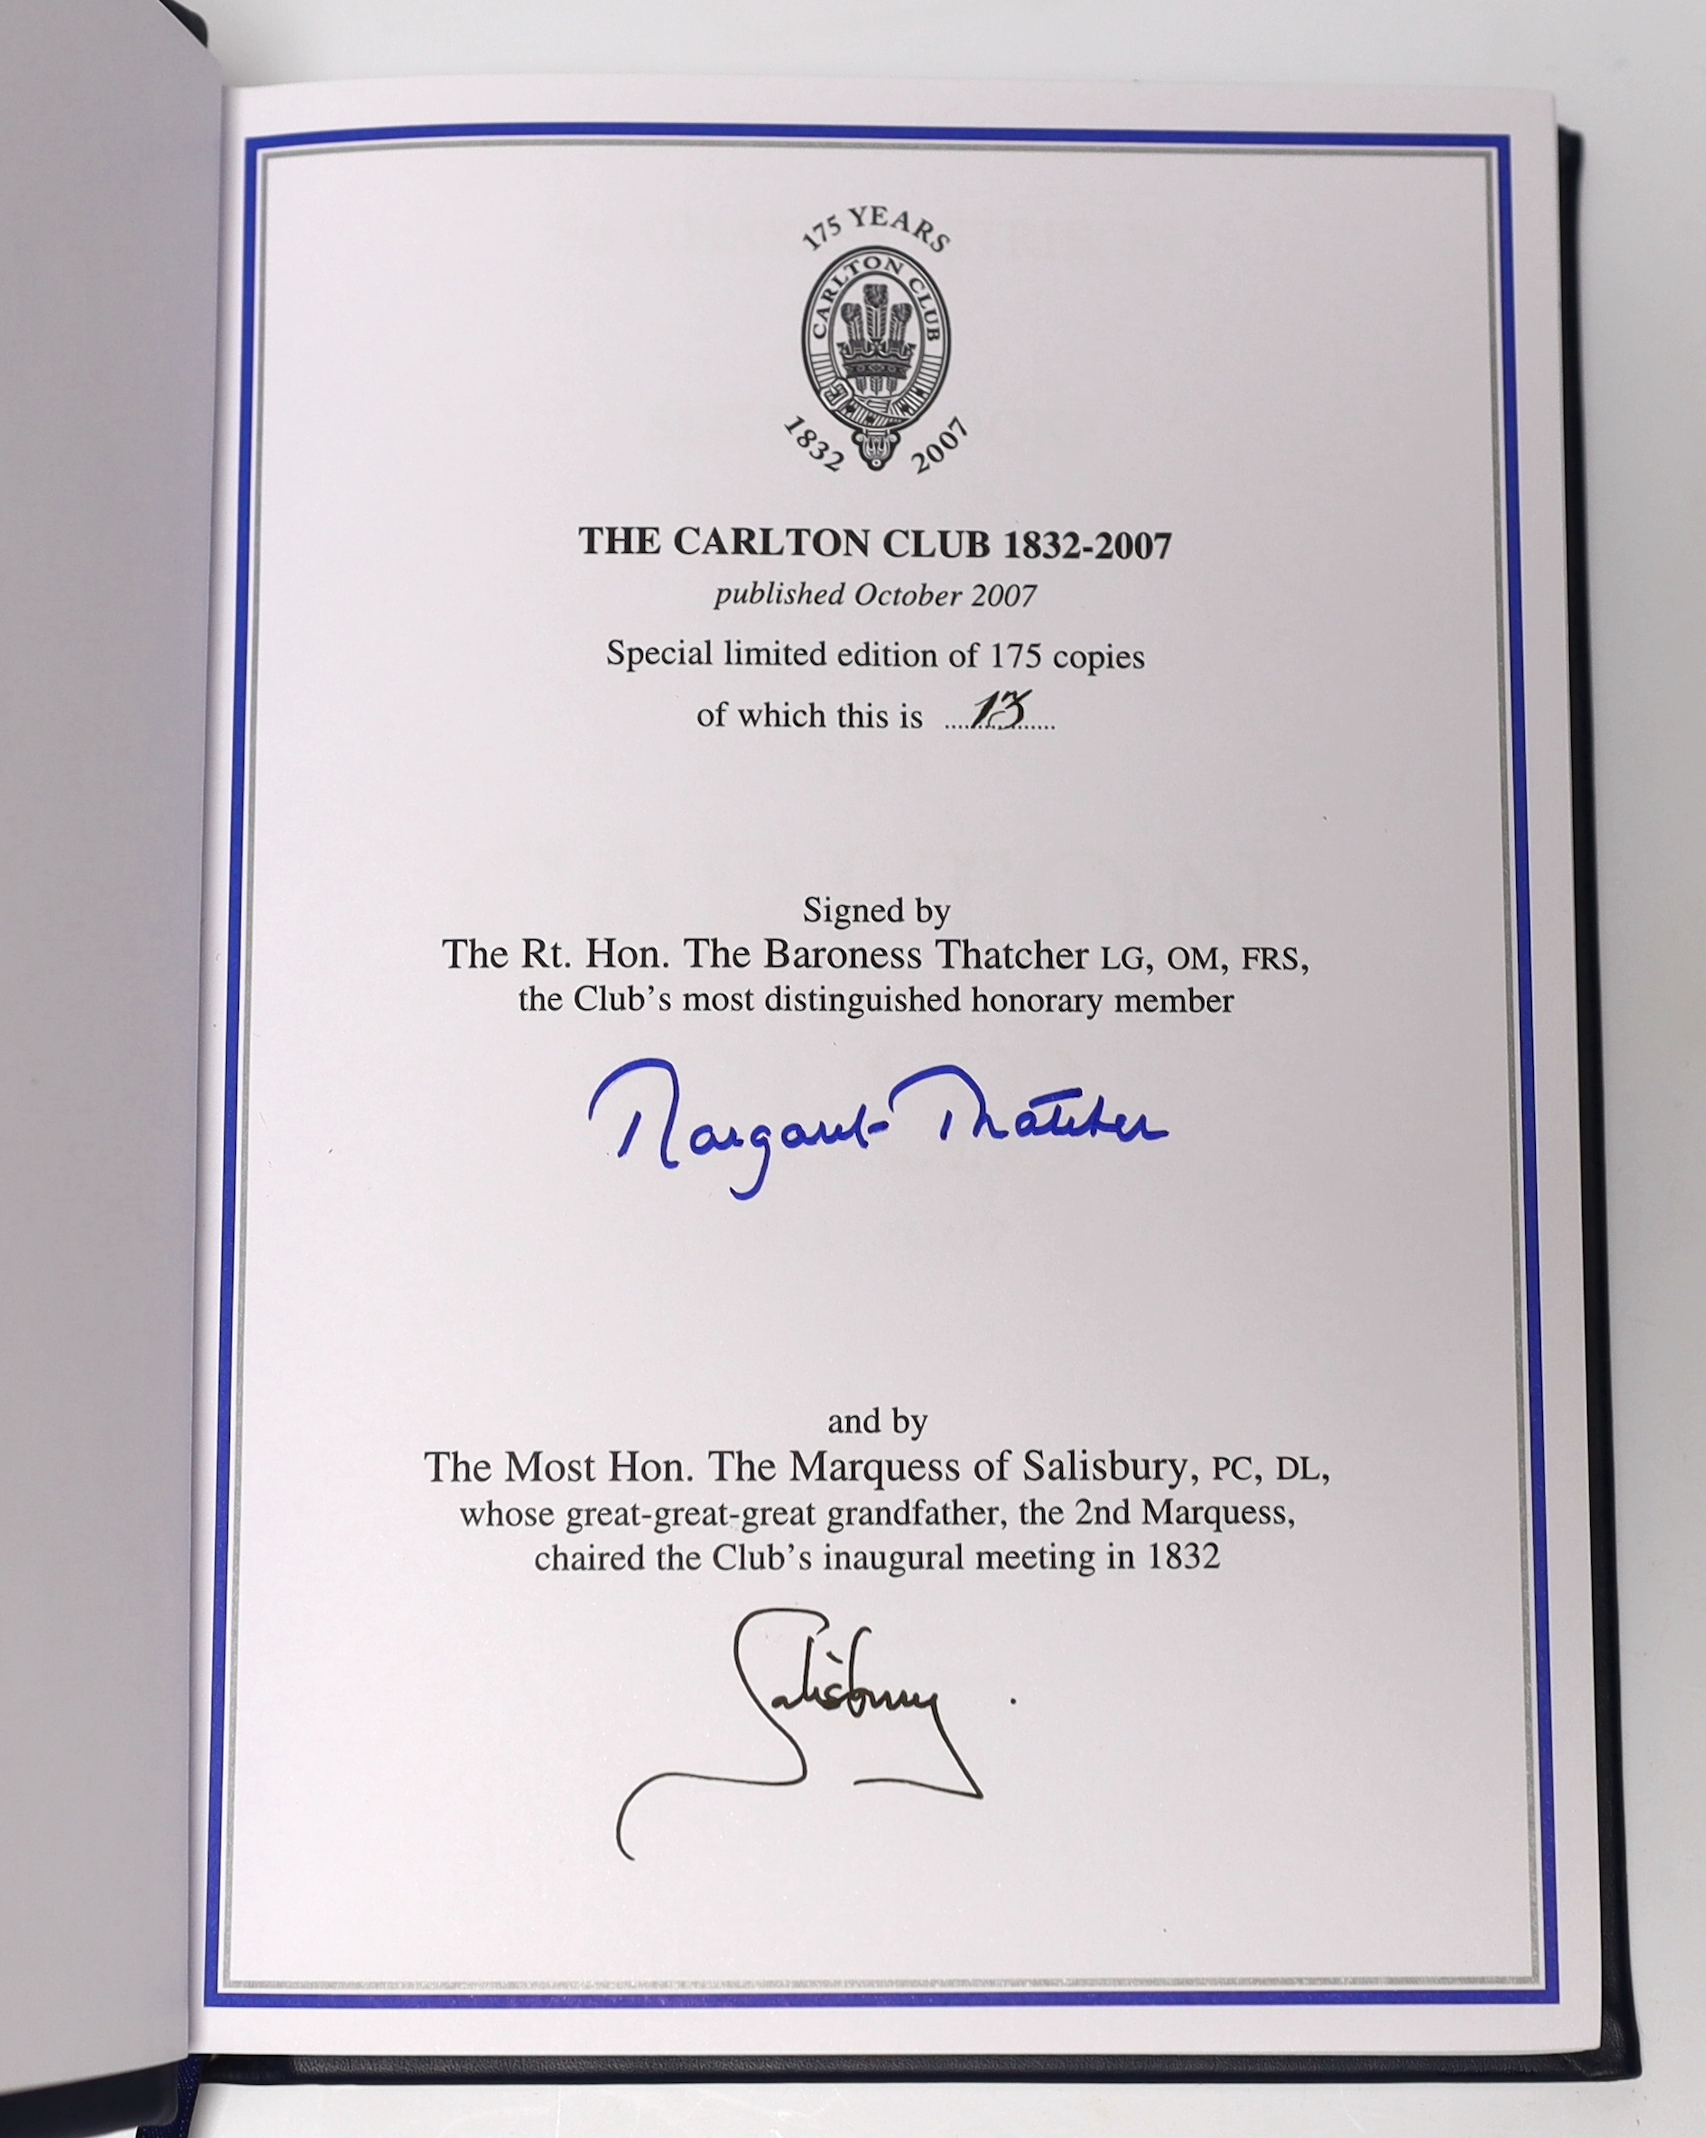 175 YEARS
CARLTON CLUB
1832 2007
THE CARLTON CLUB 1832-2007
published October 2007
Special limited edition of 175 copies
of which this is ....13....
Signed by
The Rt. Hon. The Baroness Thatcher LG, OM, FRS,
the Club's most distinguished honorary member
Margaret Thatcher
and by
The Most Hon. The Marquess of Salisbury, PC, DL,
whose great-great-great grandfather, the 2nd Marquess,
chaired the Club's inaugural meeting in 1832
Salisbury .